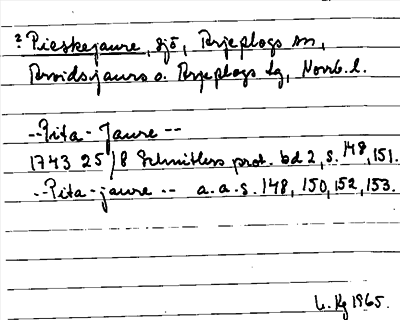 ? Pieskejaure, sjö, Arjeplogs sn,
Arvidsjaurs o. Arjeplogs tg, Norrb. l.
--Pita-Jaure--
1743 25/8 Schnitlers prot. bd 2, s. 148, 151.
--Pita-jaure-- a.a.s. 148, 150, 152, 153.
1965.